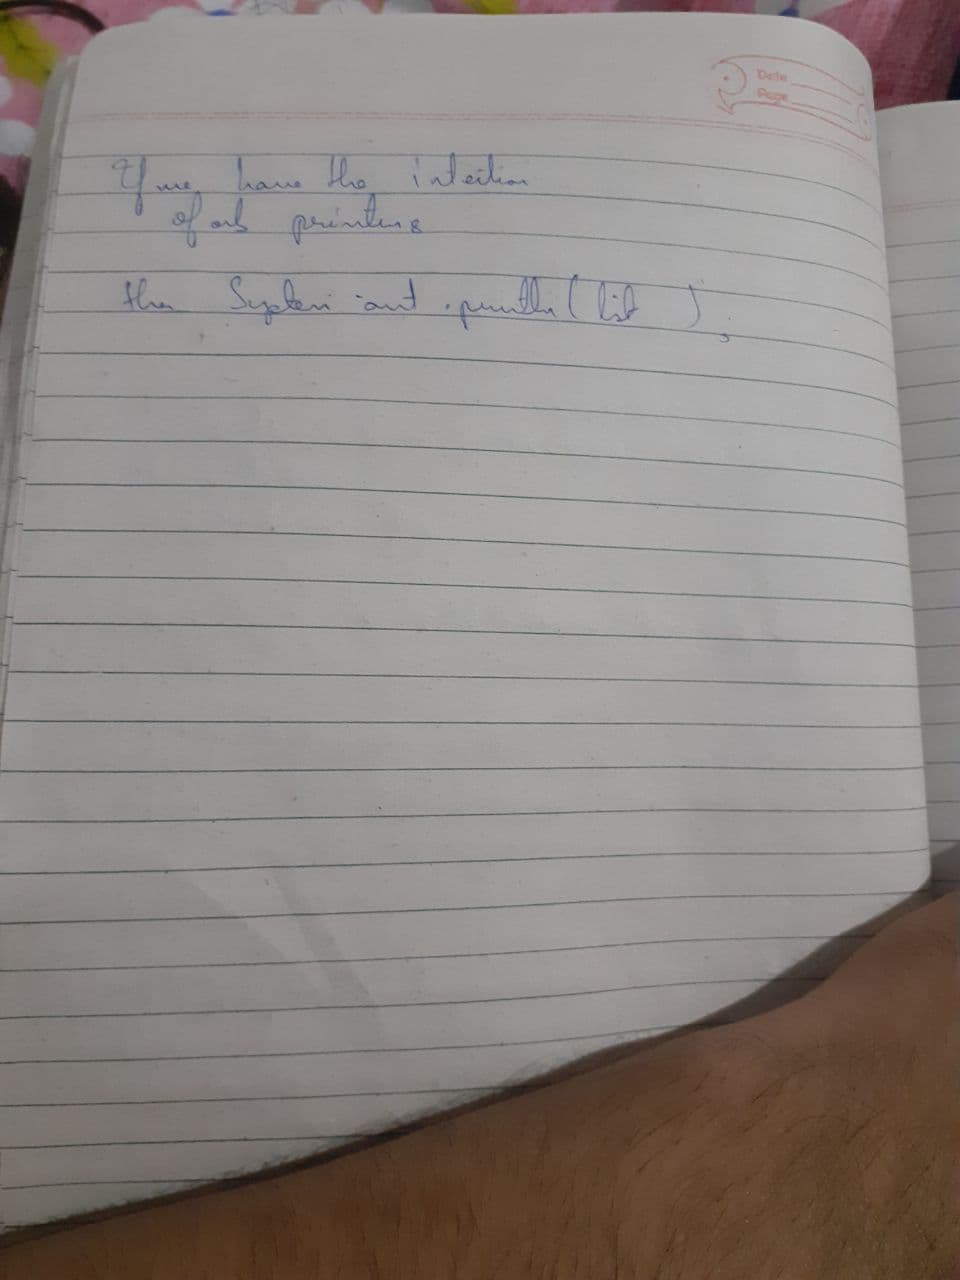 Date
Page
If we have the intention
of only printing
then System.out.println(list);